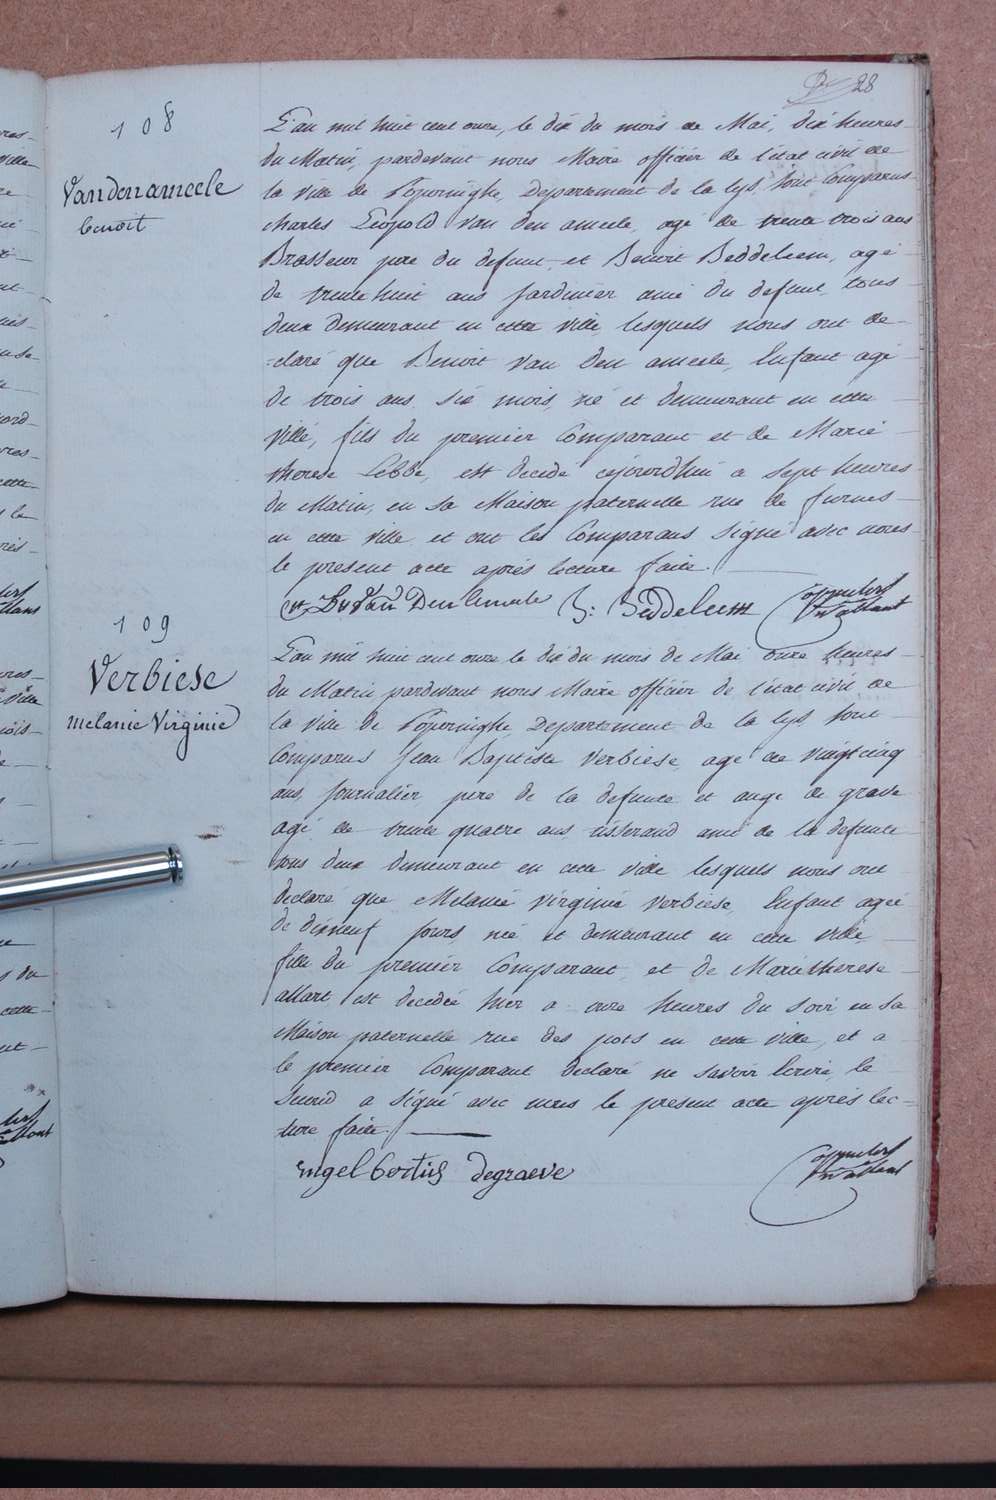 28
108
Vandenameele
benoit
L'an mil huit cent onze, le dix du mois de Mai, dix heures
du Matin, pardevant nous Maire officier de l'état civil de
la ville de Poperinghe, Departement de la lys, sont Comparus
charles Leopold Van den ameele, agé de trente trois ans
Brasseur pere du defunt, et Benoit Beddeleem, agé
de trente huit ans Jardinier ami du defunt, tous
deux demeurant en cette ville lesquels nous ont de-
-claré que Benoit Van den ameele, Enfant agé
de trois ans six mois, né et demeurant en cette
ville, fils du premier Comparant et de Marie
therese Lebbe, est decedé cejourd'hui a sept heures
du Matin, en sa Maison paternelle rue de furnes
en cette ville et ont les Comparans signé avec nous
le present acte après lecture faite.
Van Den Ameele B: Beddeleem
109
Verbiese
Melanie Virginie
L'an mil huit cent onze le dix du mois de Mai onze heures
du Matin pardevant nous Maire officier de l'état civil de
la ville de Poperinghe, Departement de la lys sont
Comparus Jean Baptiste Verbiese, agé de vingt cinq
ans, Journalier, pere de la defunte et ange de grave
agé de trente quatre ans, tisserand ami de la defunte
tous deux demeurant en cette ville lesquels nous ont
declaré que Melanie Virginie Verbiese, Enfant agée
de dixneuf jours, née et demeurant en cette ville,
fille du premier Comparant, et de Marie therese
allart est decedée hier a onze heures du soir en sa
Maison paternelle rue des pots en cette ville, et a
le premier Comparant declaré ne savoir Ecrire, le
second a signé avec nous le present acte après lec=
ture faite.
engel bertus degraeve